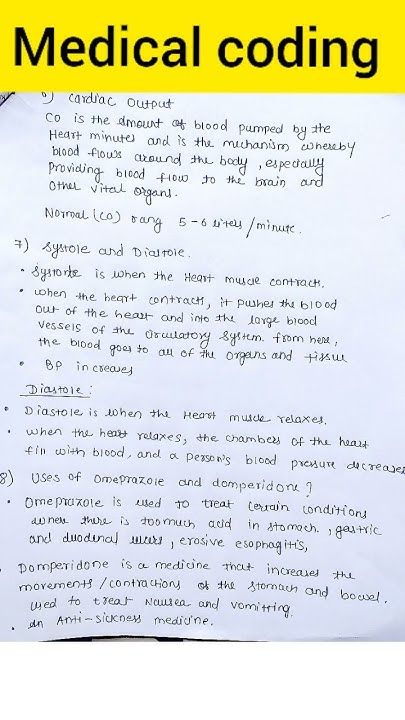 Medical coding
6) Cardiac Output
CO is the amount of blood pumped by the
Heart minutes and is the mechanism whereby
blood flows around the body, especially
Providing blood flow to the brain and
Other vital organs.
Normal (CO) rang 5-6 liters/minute.
7) Systole and Diastole.
• Systole is when the Heart muscle contract.
• when the heart contracts, it pushes the blood
out of the heart and into the large blood
vessels of the circulatory system. from here,
the blood goes to all of the organs and tissue
• BP increases
Diastole:
• Diastole is when the Heart muscle relaxes.
• when the heart relaxes, the chambers of the heart
fill with blood, and a person's blood pressure decreases
8) Uses of Omeprazole and domperidone?
• Omeprazole is used to treat certain conditions
where there is toomuch acid in stomach., gastric
and duodenal ulcers, erosive esophagitis,
Domperidone is a medicine that increases the
movements/contractions of the stomach and bowel.
used to treat Nausea and vomitting.
• An Anti-sickness medicine.